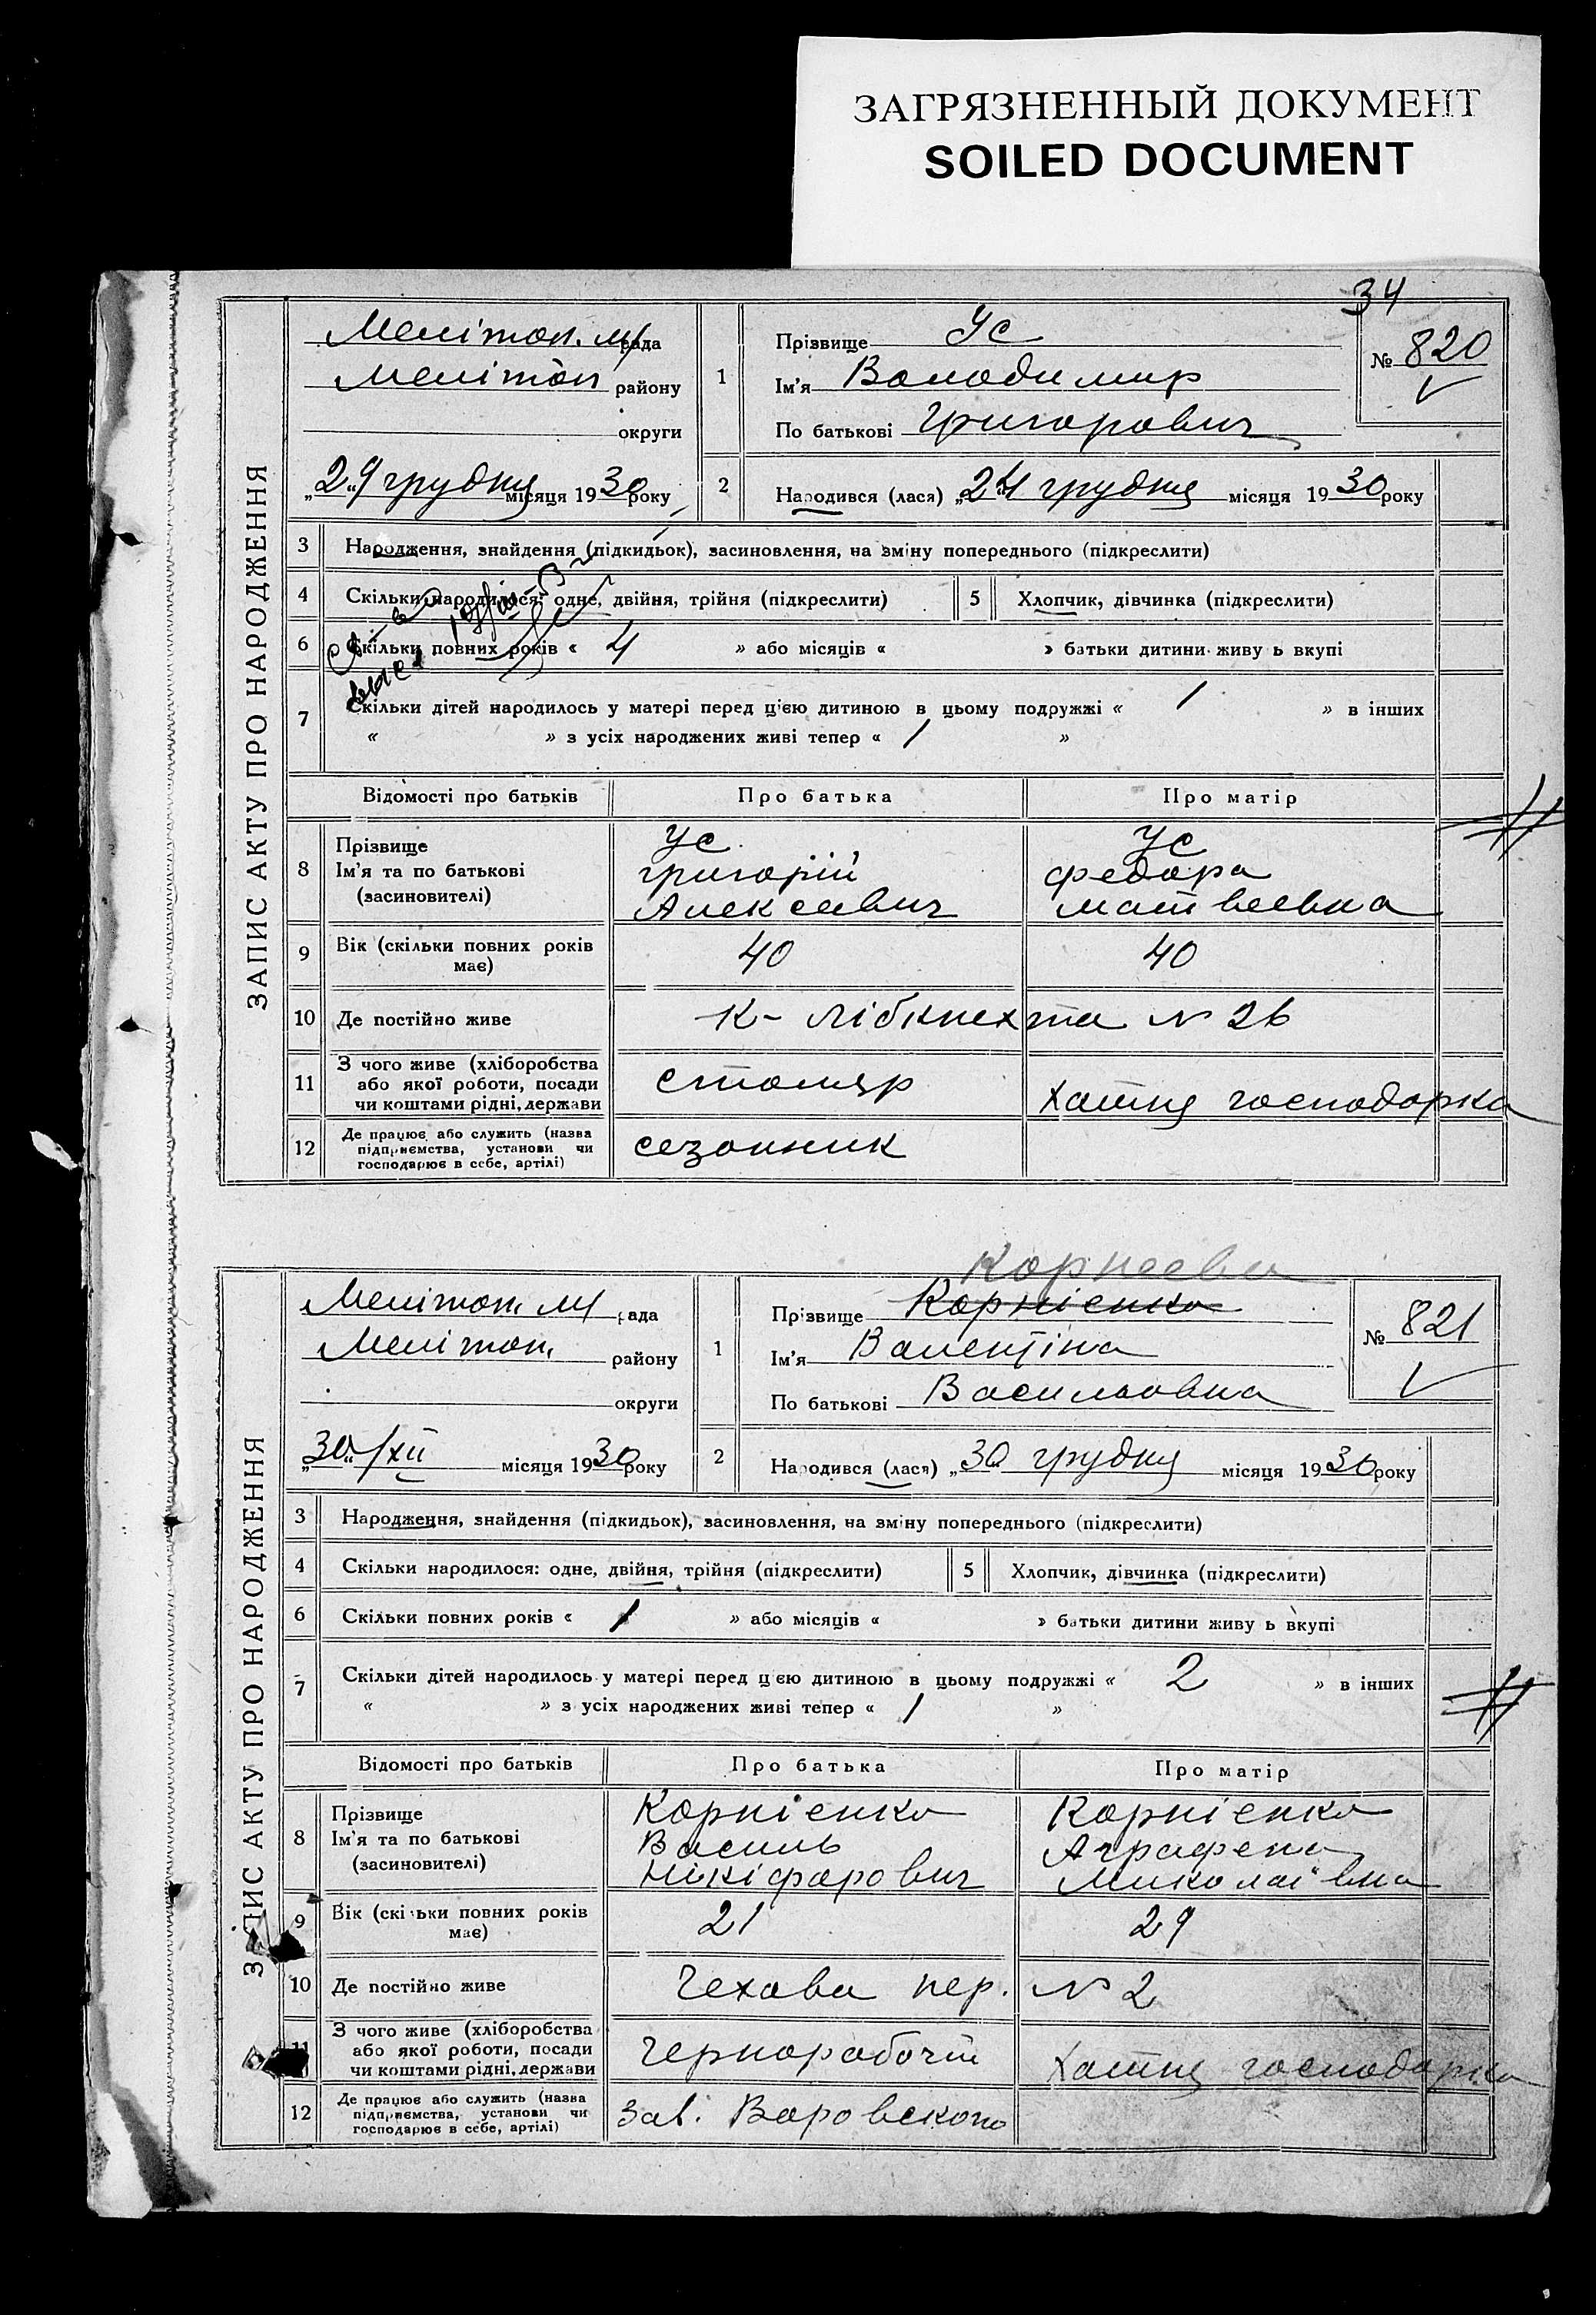 ЗАГРЯЗНЕННЫЙ ДОКУМЕНТ
SOILED DOCUMENT
34
ЗАПИС АКТУ ПРО НАРОДЖЕННЯ
Мелітоп. м/рада
Мелітоп району
округи
„29“ грудня місяця 1930 року
1
Прізвище Ус
Ім'я Володимир
По батькові Григорович
№ 820
2
Народився (лася) „24“ грудня місяця 1930 року
3 Народження, знайдення (підкидьок), засиновлення, на зміну попереднього (підкреслити)
4 Скільки народилося: одне, двійня, трійня (підкреслити)
5 Хлопчик, дівчинка (підкреслити)
6 Скільки повних років « 4 » або місяців « » батьки дитини живу ь вкупі
7 Скільки дітей народилось у матері перед цією дитиною в цьому подружжі « 1 » в інших
« » з усіх народжених живі тепер « 1 »
Відомості про батьків Про батька Про матір
8 Прізвище
Ім'я та по батькові
(засиновителі)
Ус
Григорій
Алексеевич
Ус
Федора
Матвеевна
9 Вік (скільки повних років
має)
40 40
10 Де постійно живе К- Лібкнехта N 26
11 З чого живе (хліборобства
або якої роботи, посади
чи коштами рідні, держави
столяр
хатня господарка
12 Де працює або служить (назва
підприємства, установи чи
господарює в себе, артілі)
сезонник
ЗАПИС АКТУ ПРО НАРОДЖЕННЯ
Мелітоп. м/рада
Мелітоп. району
округи
„30“/XII місяця 1930 року
1
Корнеева
Прізвище Корнієнко
Ім'я Валентіна
По батькові Васильовна
№ 821
2
Народився (лася) „30 грудня місяця 1930 року
3 Народження, знайдення (підкидьок), засиновлення, на зміну попереднього (підкреслити)
4 Скільки народилося: одне, двійня, трійня (підкреслити)
5 Хлопчик, дівчинка (підкреслити)
6 Скільки повних років « 1 » або місяців « » батьки дитини живу ь вкупі
7 Скільки дітей народилось у матері перед цією дитиною в цьому подружжі « 2 » в інших
« » з усіх народжених живі тепер « 1 »
Відомості про батьків Про батька Про матір
8 Прізвище
Ім'я та по батькові
(засиновителі)
Корнієнко
Василь
Нікіфорович
Корнієнко
Аграфена
Миколаївна
9 Вік (скільки повних років
має)
21 29
10 Де постійно живе Чехова пер. N 2
11 З чого живе (хліборобства
або якої роботи, посади
чи коштами рідні, держави
Чернорабочій
хатня господарка
12 Де працює або служить (назва
підприємства, установи чи
господарює в себе, артілі)
Зав. Воровського